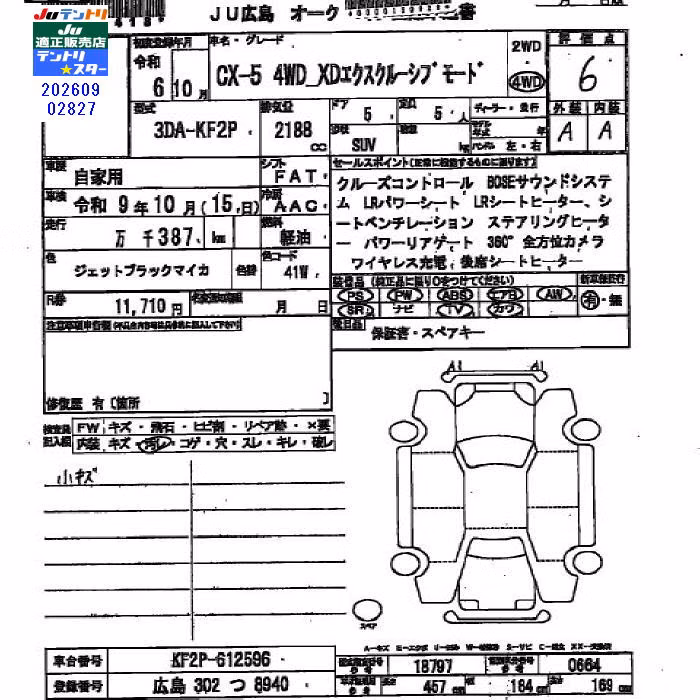 Juテントリ
JU広島 オーク
Ju
適正販売店
テントリ
★スター
202609
02827
初度登録年月
令和
6 10月
車名・グレード
CX-5 4WD_XDエクスクルーシブ モード
2WD
4WD
評価点
6
型式
3DA-KF2P
排気量
2188
cc
ドア
5
定員
5 人
形状
SUV
kg
ディーラー・並行
年
ハンドル 左・右
外装
A
内装
A
車歴
自家用
シフト
FAT
車検
令和 9年10月(15日)
冷房
AAC
走行
万 千387 km
燃料
軽油
色
ジェットブラックマイカ
色替
色コード
41W
R券
11,710円
月 日
セールスポイント(正常に機能するものに限ります)
クルーズコントロール BOSEサウンドシステ
ム LRパワーシート LRシートヒーター、シ
ートベンチレーション ステアリングヒータ
ー パワーリアゲート 360°全方位カメラ
ワイヤレス充電、後席シートヒーター
装備品(純正品に限り○をつけてください)
PS PW ABS エアB AW
SR ナビ TV カワ
新車保証書
有・無
保証書・スペアキー
修復歴 有〔箇所 〕
検査員
記入欄
FW キズ・飛石・ヒビ割・リペア跡・×要
内装 キズ・汚レ・コゲ・穴・スレ・キレ・破レ
小キズ
A1 A1
スペア
車台番号
KF2P-612596
登録番号
広島 302 つ 8940
18797
0664
457 cm
184 cm
169 cm